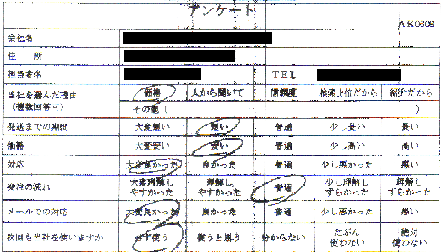 アンケート
AK0608
会社名
住 所
担当者名 TEL
当社を選んだ理由 価格 人から聞いて 信頼度 検索上位だから 紹介だから
(複数回答可) その他( )
発送までの期間 大変短い 短い 普通 少し長い 長い
価格 大変安い 安い 普通 少し高い 高い
対応 大変良かった 良かった 普通 少し悪かった 悪い
発注の流れ 大変理解し 理解し 普通 少し理解し 理解し
やすかった やすかった ずらかった ずらかった
メールでの対応 大変良かった 良かった 普通 少し悪かった 悪い
次回も当社を使いますか 必ず使う 使うと思う 分からない たぶん 絶対
使わない 使わない